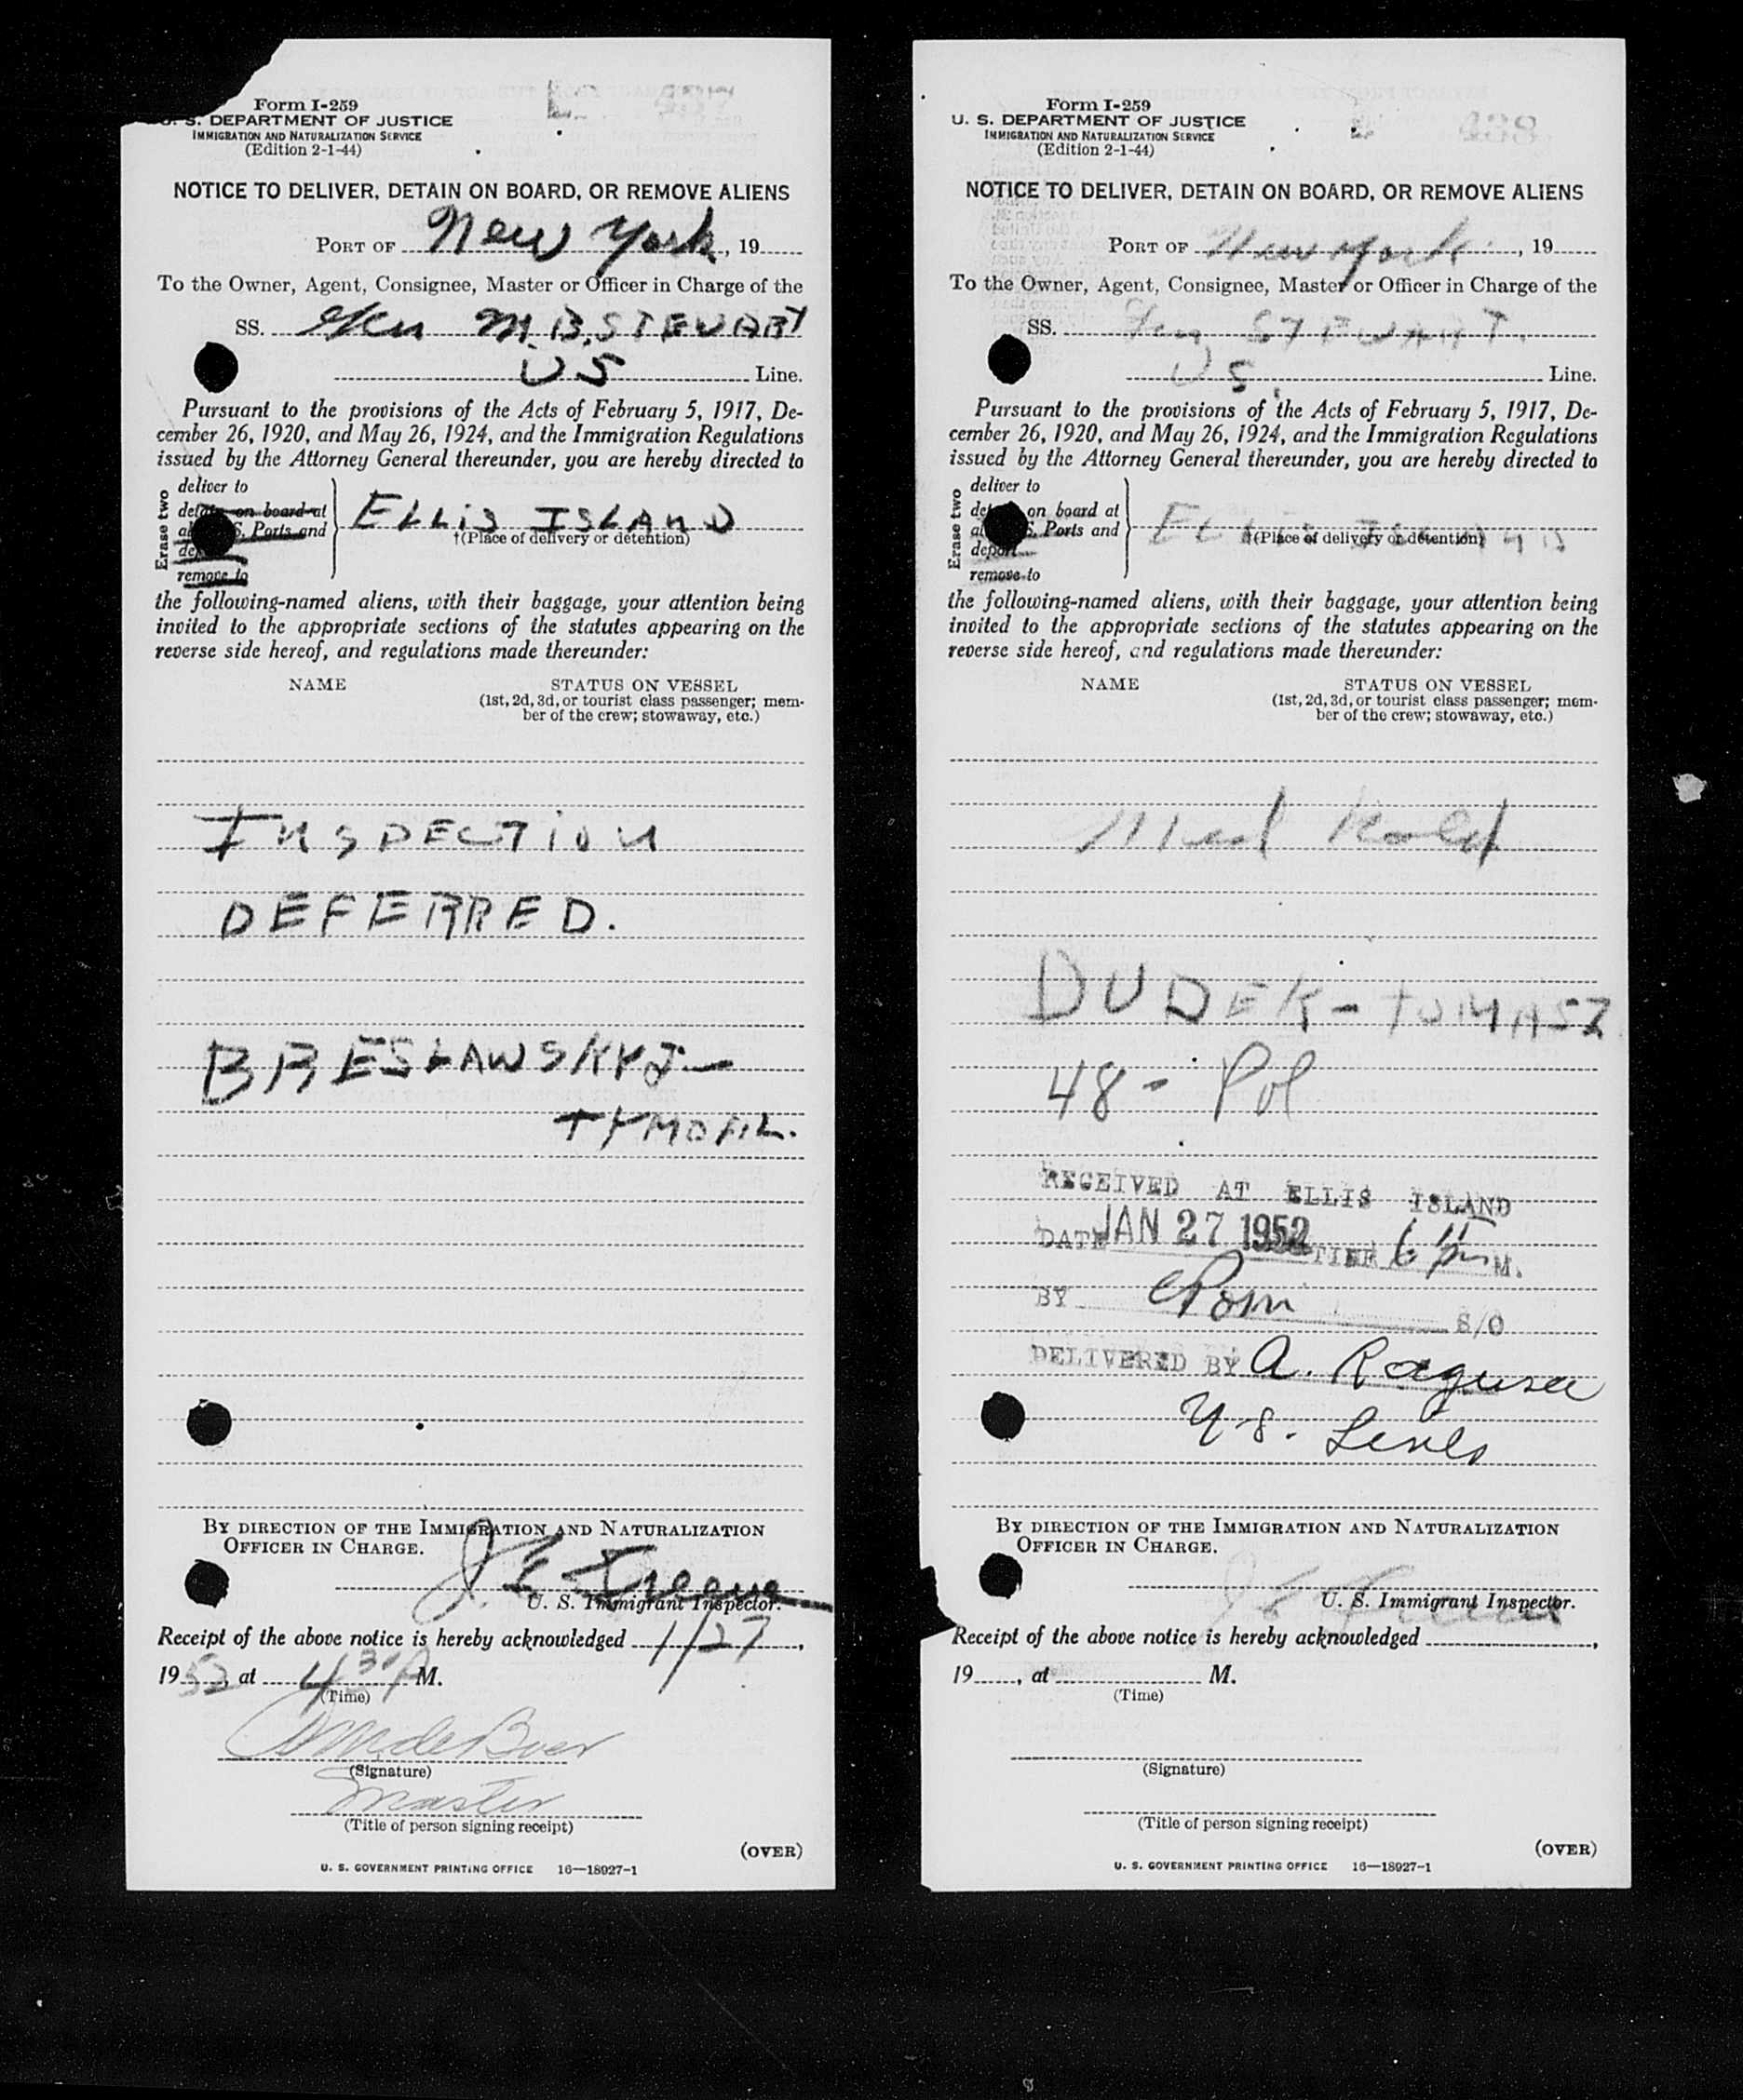 Form I-259
U. S. DEPARTMENT OF JUSTICE
IMMIGRATION AND NATURALIZATION SERVICE
(Edition 2-1-44)
NOTICE TO DELIVER, DETAIN ON BOARD, OR REMOVE ALIENS
PORT OF New York, 19
To the Owner, Agent, Consignee, Master or Officer in Charge of the
SS. Gen M.B. STEWART
US Line.
Pursuant to the provisions of the Acts of February 5, 1917, De-
cember 26, 1920, and May 26, 1924, and the Immigration Regulations
issued by the Attorney General thereunder, you are hereby directed to
Erase two
deliver to
on board at
S. Ports and
remove to
ELLIS ISLAND
†(Place of delivery or detention)
the following-named aliens, with their baggage, your attention being
invited to the appropriate sections of the statutes appearing on the
reverse side hereof, and regulations made thereunder:
NAME STATUS ON VESSEL
(1st, 2d, 3d, or tourist class passenger; mem-
ber of the crew; stowaway, etc.)
INSPECTION
DEFERRED.
BRESLAWSKYJ -
TYMOFIL.
BY DIRECTION OF THE IMMIGRATION AND NATURALIZATION
OFFICER IN CHARGE.
U. S. Immigrant Inspector.
Receipt of the above notice is hereby acknowledged 1/27,
1952 at 4 30 P M.
(Time)
(Signature)
Master
(Title of person signing receipt)
(OVER)
U. S. GOVERNMENT PRINTING OFFICE 16—18927-1
Form I-259
438
U. S. DEPARTMENT OF JUSTICE
IMMIGRATION AND NATURALIZATION SERVICE
(Edition 2-1-44)
NOTICE TO DELIVER, DETAIN ON BOARD, OR REMOVE ALIENS
PORT OF New York, 19
To the Owner, Agent, Consignee, Master or Officer in Charge of the
SS. Gen STEWART.
US Line.
Pursuant to the provisions of the Acts of February 5, 1917, De-
cember 26, 1920, and May 26, 1924, and the Immigration Regulations
issued by the Attorney General thereunder, you are hereby directed to
Erase two
deliver to
on board at
S. Ports and
deport
remove to
ELLIS ISLAND
†(Place of delivery or detention)
the following-named aliens, with their baggage, your attention being
invited to the appropriate sections of the statutes appearing on the
reverse side hereof, and regulations made thereunder:
NAME STATUS ON VESSEL
(1st, 2d, 3d, or tourist class passenger; mem-
ber of the crew; stowaway, etc.)
Med Hold
DUDEK - TOMASZ
48 - Pol
RECEIVED AT ELLIS ISLAND
DATE JAN 27 1952 TIME 6 15 pm M.
BY S/O
DELIVERED BY A. Ragusa
U.S. Lines
BY DIRECTION OF THE IMMIGRATION AND NATURALIZATION
OFFICER IN CHARGE.
U. S. Immigrant Inspector.
Receipt of the above notice is hereby acknowledged ,
19 , at M.
(Time)
(Signature)
(Title of person signing receipt)
(OVER)
U. S. GOVERNMENT PRINTING OFFICE 16—18927-1